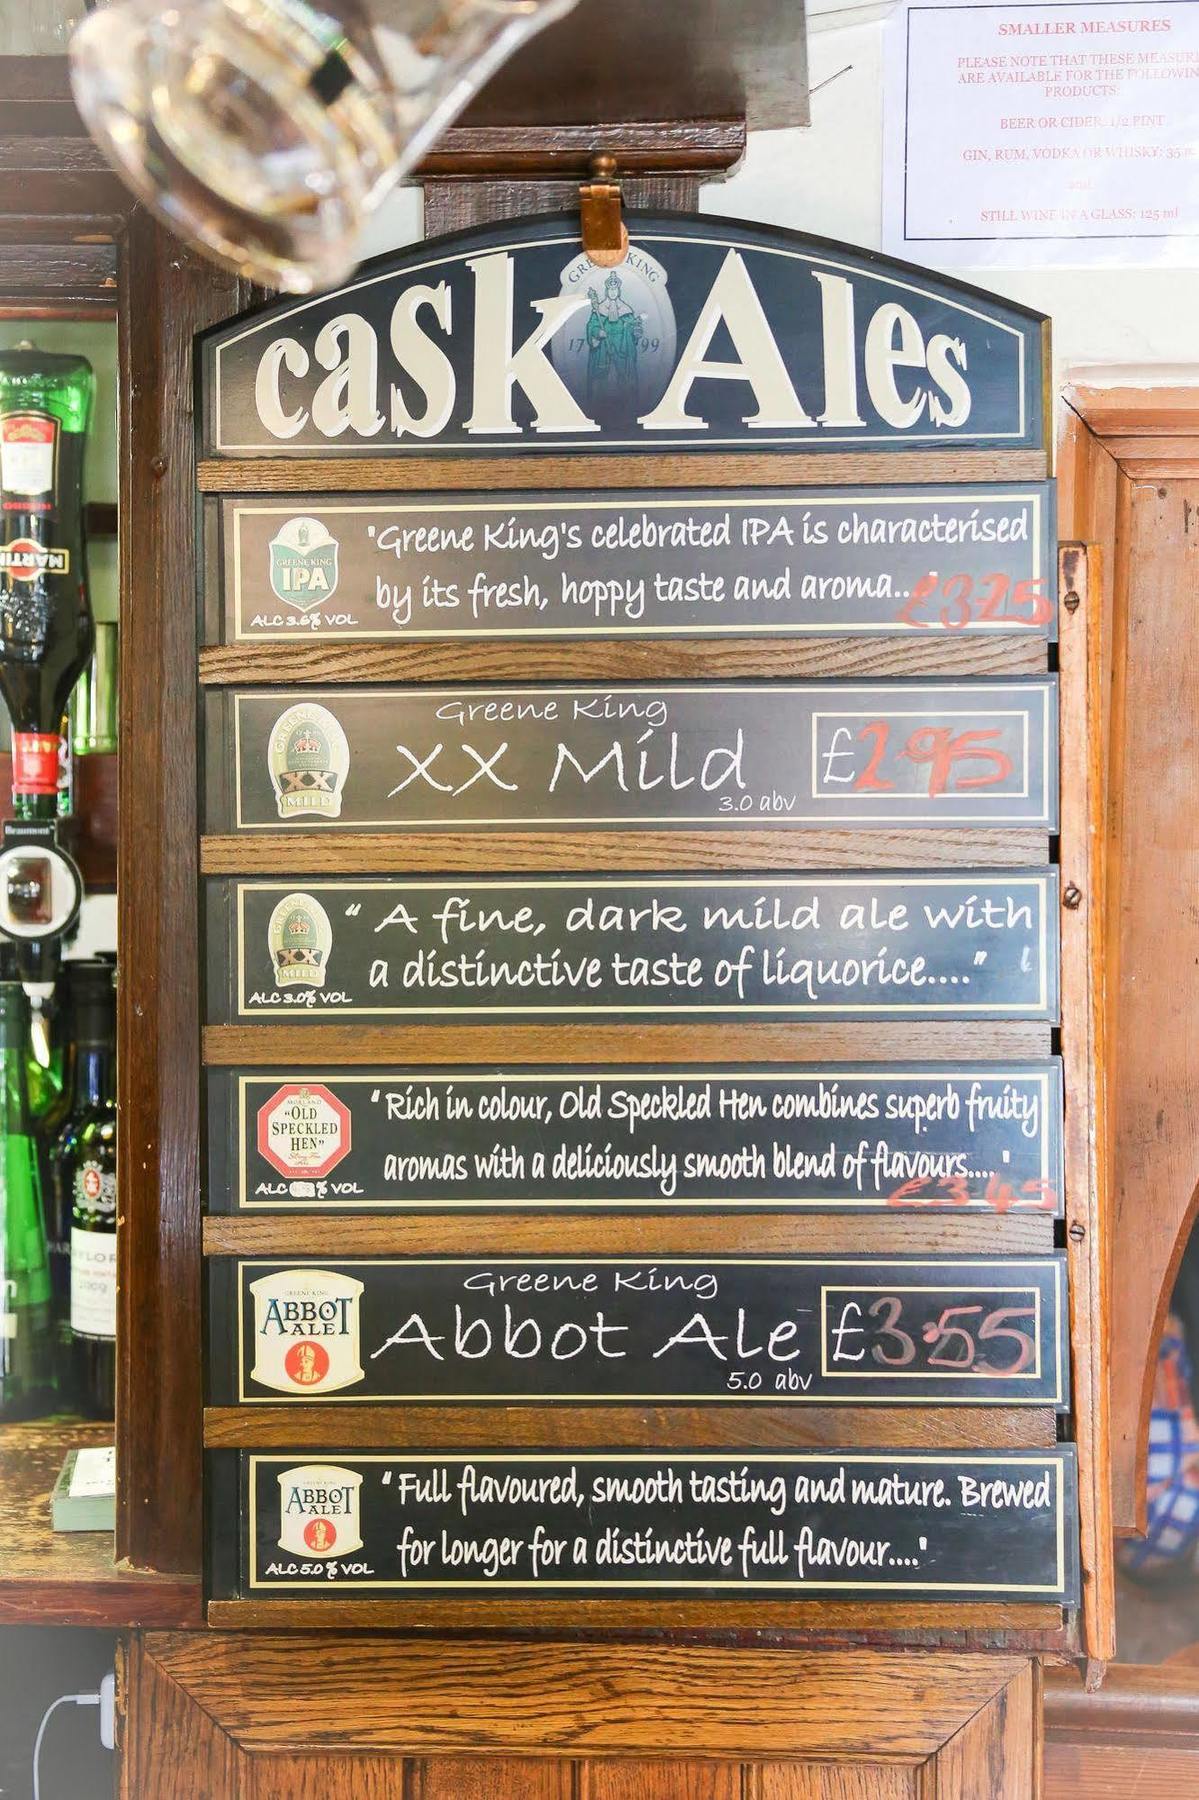 SMALLER MEASURES
PLEASE NOTE THAT THESE
ARE AVAILABLE FOR THE
PRODUCTS:
BEER OR CIDER: 1/2 PINT
GIN, RUM, VODKA OR WHISKY: 35
and
STILL WINE IN A GLASS: 125 ml
GREENE KING
17 99
cask Ales
GREENE KING
IPA
ALC 3.6% VOL
"Greene King's celebrated IPA is characterised
by its fresh, hoppy taste and aroma..."
£3.25
GREENE KING
XX
MILD
Greene King
XX Mild
3.0 abv
£2.95
XX
MILD
ALC 3.0% VOL
"A fine, dark mild ale with
a distinctive taste of liquorice...."
MORLAND
"OLD
SPECKLED
HEN"
ALC % VOL
"Rich in colour, Old Speckled Hen combines superb fruity
aromas with a deliciously smooth blend of flavours....'
£3.45
GREENE KING
ABBOT
ALE
Greene King
Abbot Ale
5.0 abv
£3.55
GREENE KING
ABBOT
ALE
ALC 5.0% VOL
"Full flavoured, smooth tasting and mature. Brewed
for longer for a distinctive full flavour....'
MARTINI
Beaumont